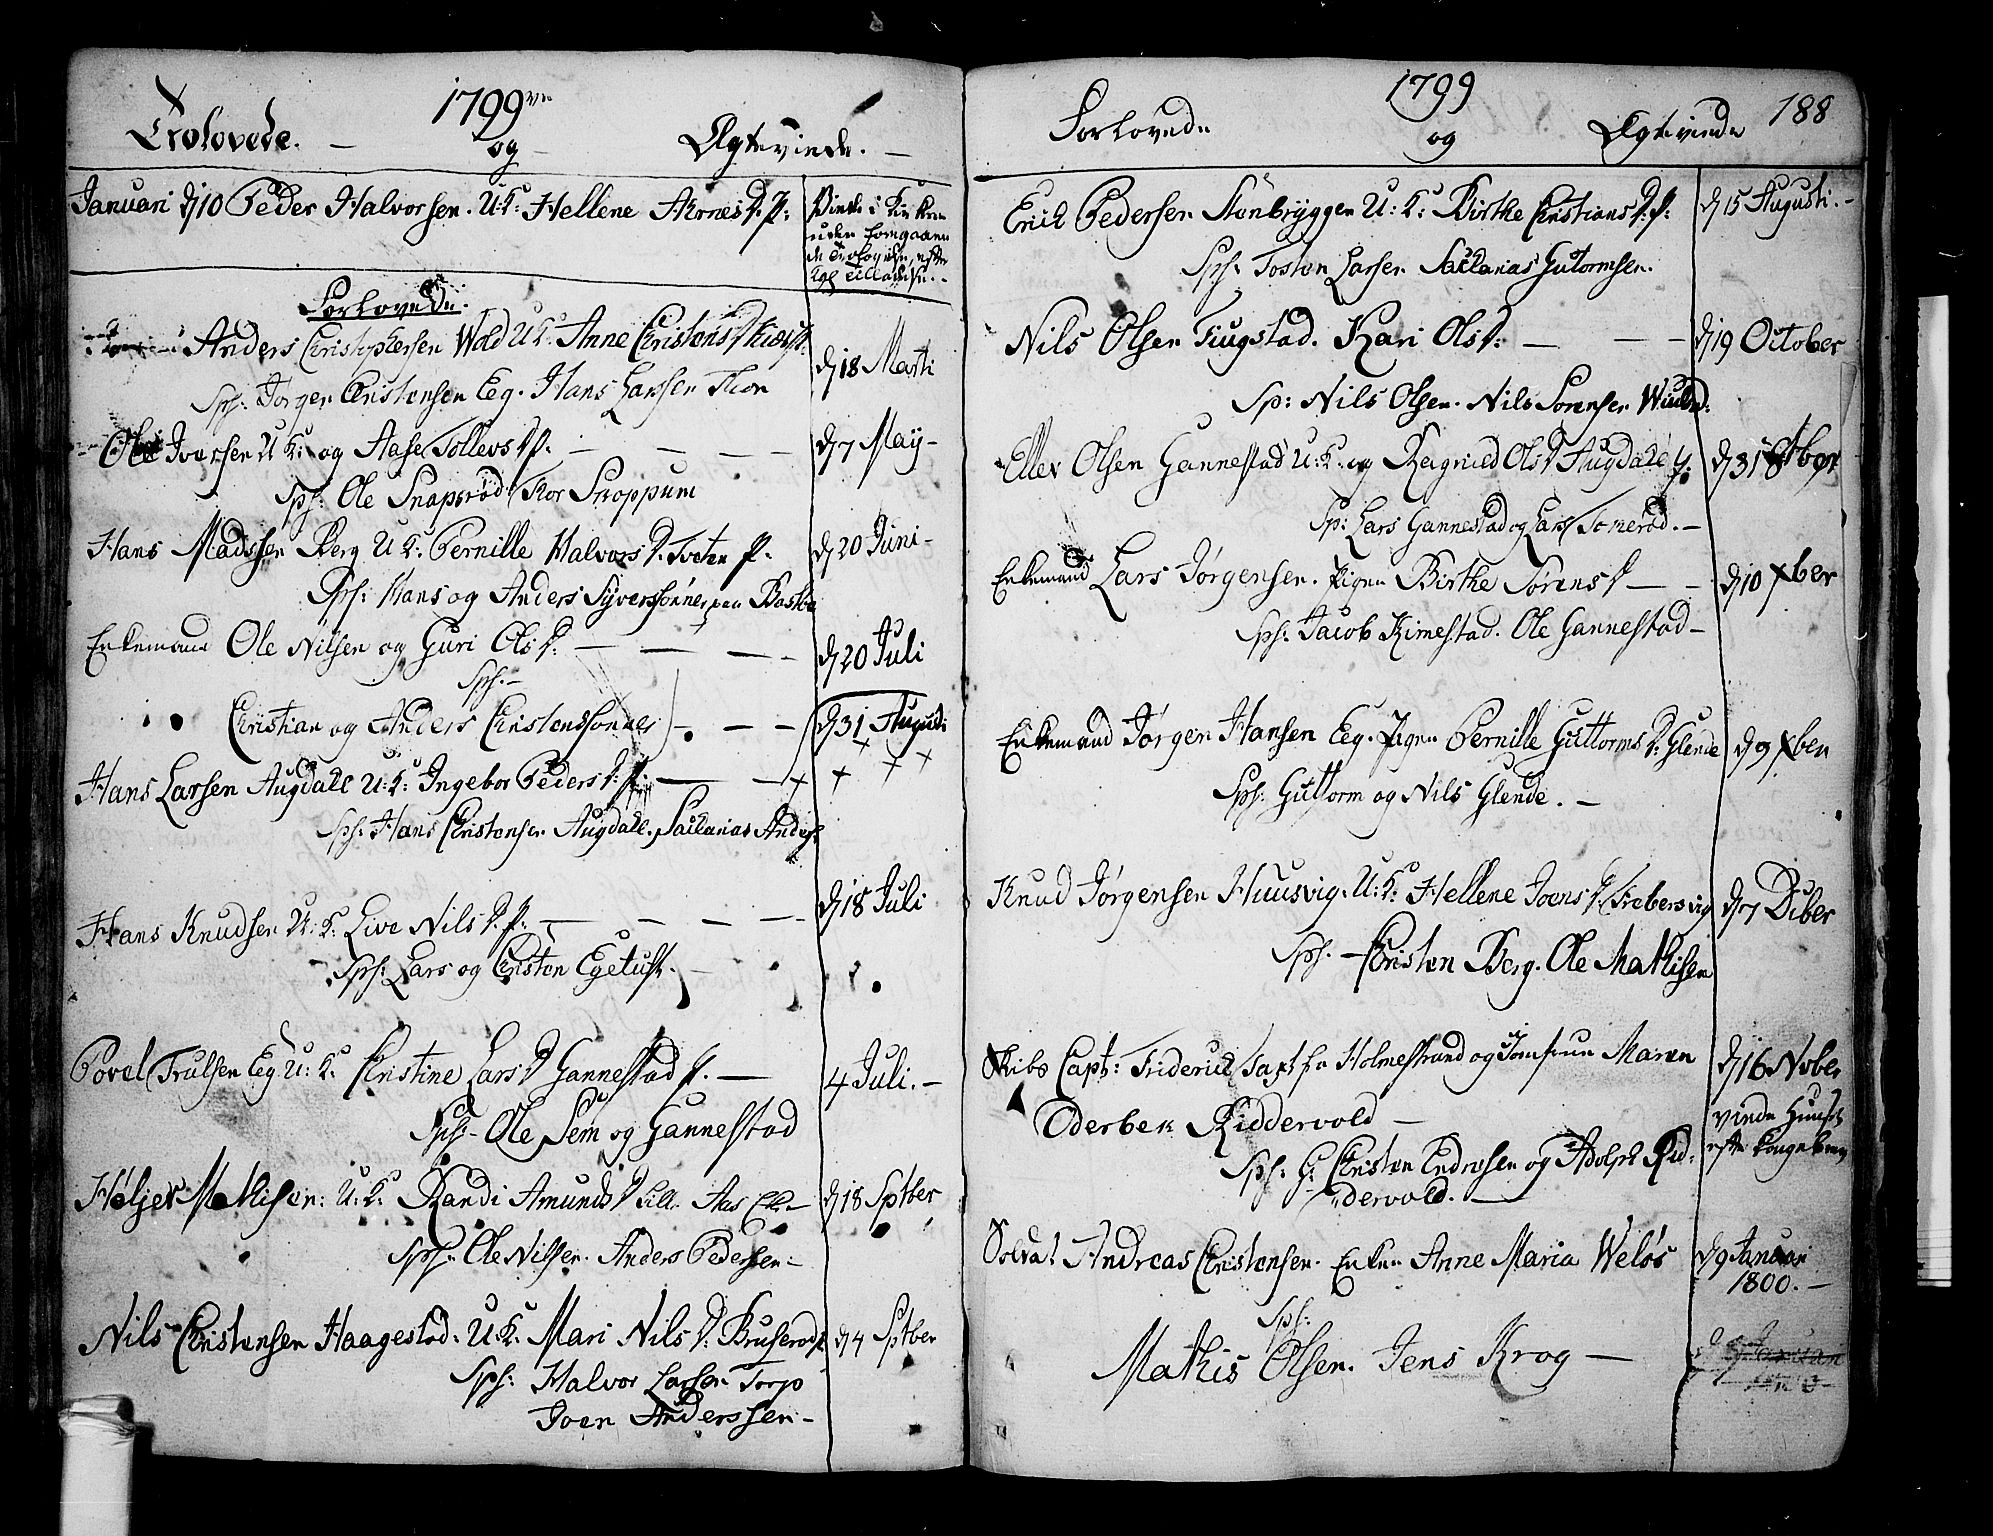 1799
Trolovede. — og — Ægteviede. —
Januari d 10 Peder Halvorsen. U: K: Hellene Arnes D. P:
Viede i Kirken
uden foregaaen
de Trolovelse, efter
Kgl. tilladelse. -
Forlovede:
Anders Christophersen Wold U: K: Anne Christens D
d 18 Marti
Sps: Jørgen Christensen Eeg. Hans Larsen Thon
Ole Iversen U: K: og Aase Tollevs D P. — — — —
d 7 May -
Sps: Ole Snapsrød Thor Snoppum
Hans Madssen Berg U: K: Pernille Halvors D. Tveten P.
d 20 Juni -
Sps: Hans og Anders Syverssønner paa
Enkemand Ole Nilsen og Guri Ols D. — — — —
d 20 Juli
Sps. -
Christian og Anders Christenssønner — — —
d 31 Augusti
Hans Larsen Augdall U: K: Ingebor Peders D: P: — — +
+ + +
Sps: Hans Christensen Augdall. Sacharias Anders:
Hans Knudsen U: K: Live Nils D. P. — — — —
d 18 Juli
Sps: Lars og Christen Egetuft. -
Povel Trulsen Eeg U: K: Christine Lars D Gannestad P. —
4 Juli. -
Sps - Ole Sem og Gannestad
Høljer Mathisen: U: K: Randi Amunds D Lille Aas
d 18 Sptber
Sps: Ole Nilsen. Anders Pedersen -
Nils Christensen Haagestad. U: K: Mari Nils D. Bruserød P.
d 4 Sptber
Sps: Halvor Larsen Torp
Joen Anderssen -
1799
188
Forlovede og Ægteviede
Erich Pedersen Stenbryggen U: K: Birthe Christians D. P:
d 15 Augusti. -
Sps: Tosten Larsen Sacharias Gutormsen.
Nils Olsen Fuugstad. Kari Ols D. — — —
d 19 October
Sp: Nils Olsen. Nils Sørensen
Ellev Olsen Gannestad U: K: og Ragnild Ols D Augdahl P.
d 31 8tber
Sp: Lars Gannestad og Lars Tomerød. -
Enkemand Lars Jørgensen. Pigen Birthe Sørens D — —
d 10 Xber
Sps: Jacob Kimestad. Ole Gannestad -
Enkemand Jørgen Hansen Eeg. Pigen Pernille Guttorms D: Glende
d 9 Xben
Sps: Guttorm og Nils Glende. —
Knud Jørgensen Huusvig. U: K: Hellene Joens D.
d 7 Dcber
Sps. - Christen Berg. Ole Mathisen
Skibs Capt: Friderich Saxt fra Holmestrand og Jomfrue Maren
d 16 Nvber
Oderbek Riddervold —
viede Huuset
efter Kongebrev
Sps: G: Christen Endresen og Adolph Rid:
dervold. —
Soldat Andreas Christensen. Enken Anne Maria Weløs
d 9 Januari
1800. -
Sps:
Mathis Olsen. Jens Krog —
d 9 Januari